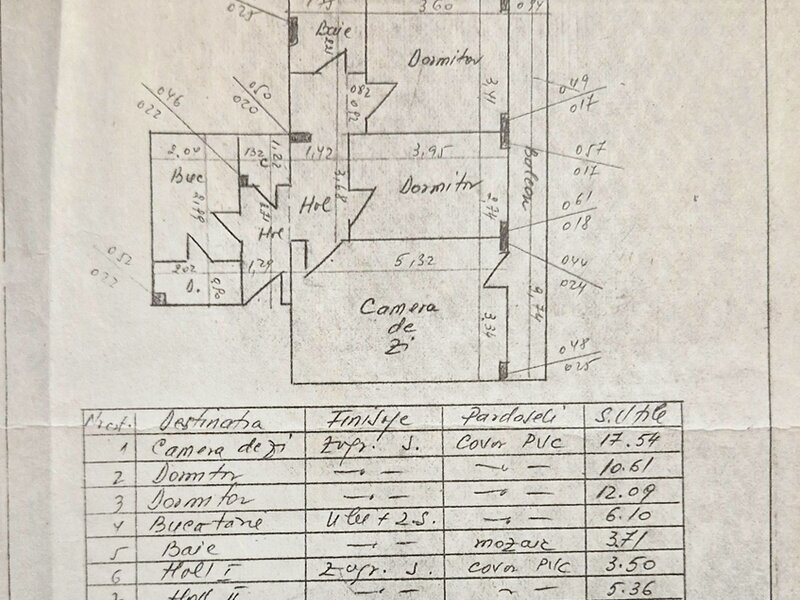 025
3.60
Baie
Dormitor
3,41
049
017
046
022
050
020
082
2.00
132
1,22
1,42
3,95
057
017
Buc
2,99
Balcon
Dormitor
3,68
2,74
061
018
Hol
Hol
052
022
202
1,29
5,32
040
024
D.
9,74
Camera
de
Zi
3,34
048
025
Nr crt. Destinatia Finisaje Pardoseli S. Utile
1 Camera de zi Zugr. S. Covor PVC 17.54
2 Dormitor —"— —"— 10.61
3 Dormitor —"— —"— 12.09
4 Bucatarie Ulei + Z.S. —"— 6.10
5 Baie —"— mozaic 3.71
6 Holl I Zugr. S. Covor PVC 3.50
7 Holl II —"— —"— 5.36